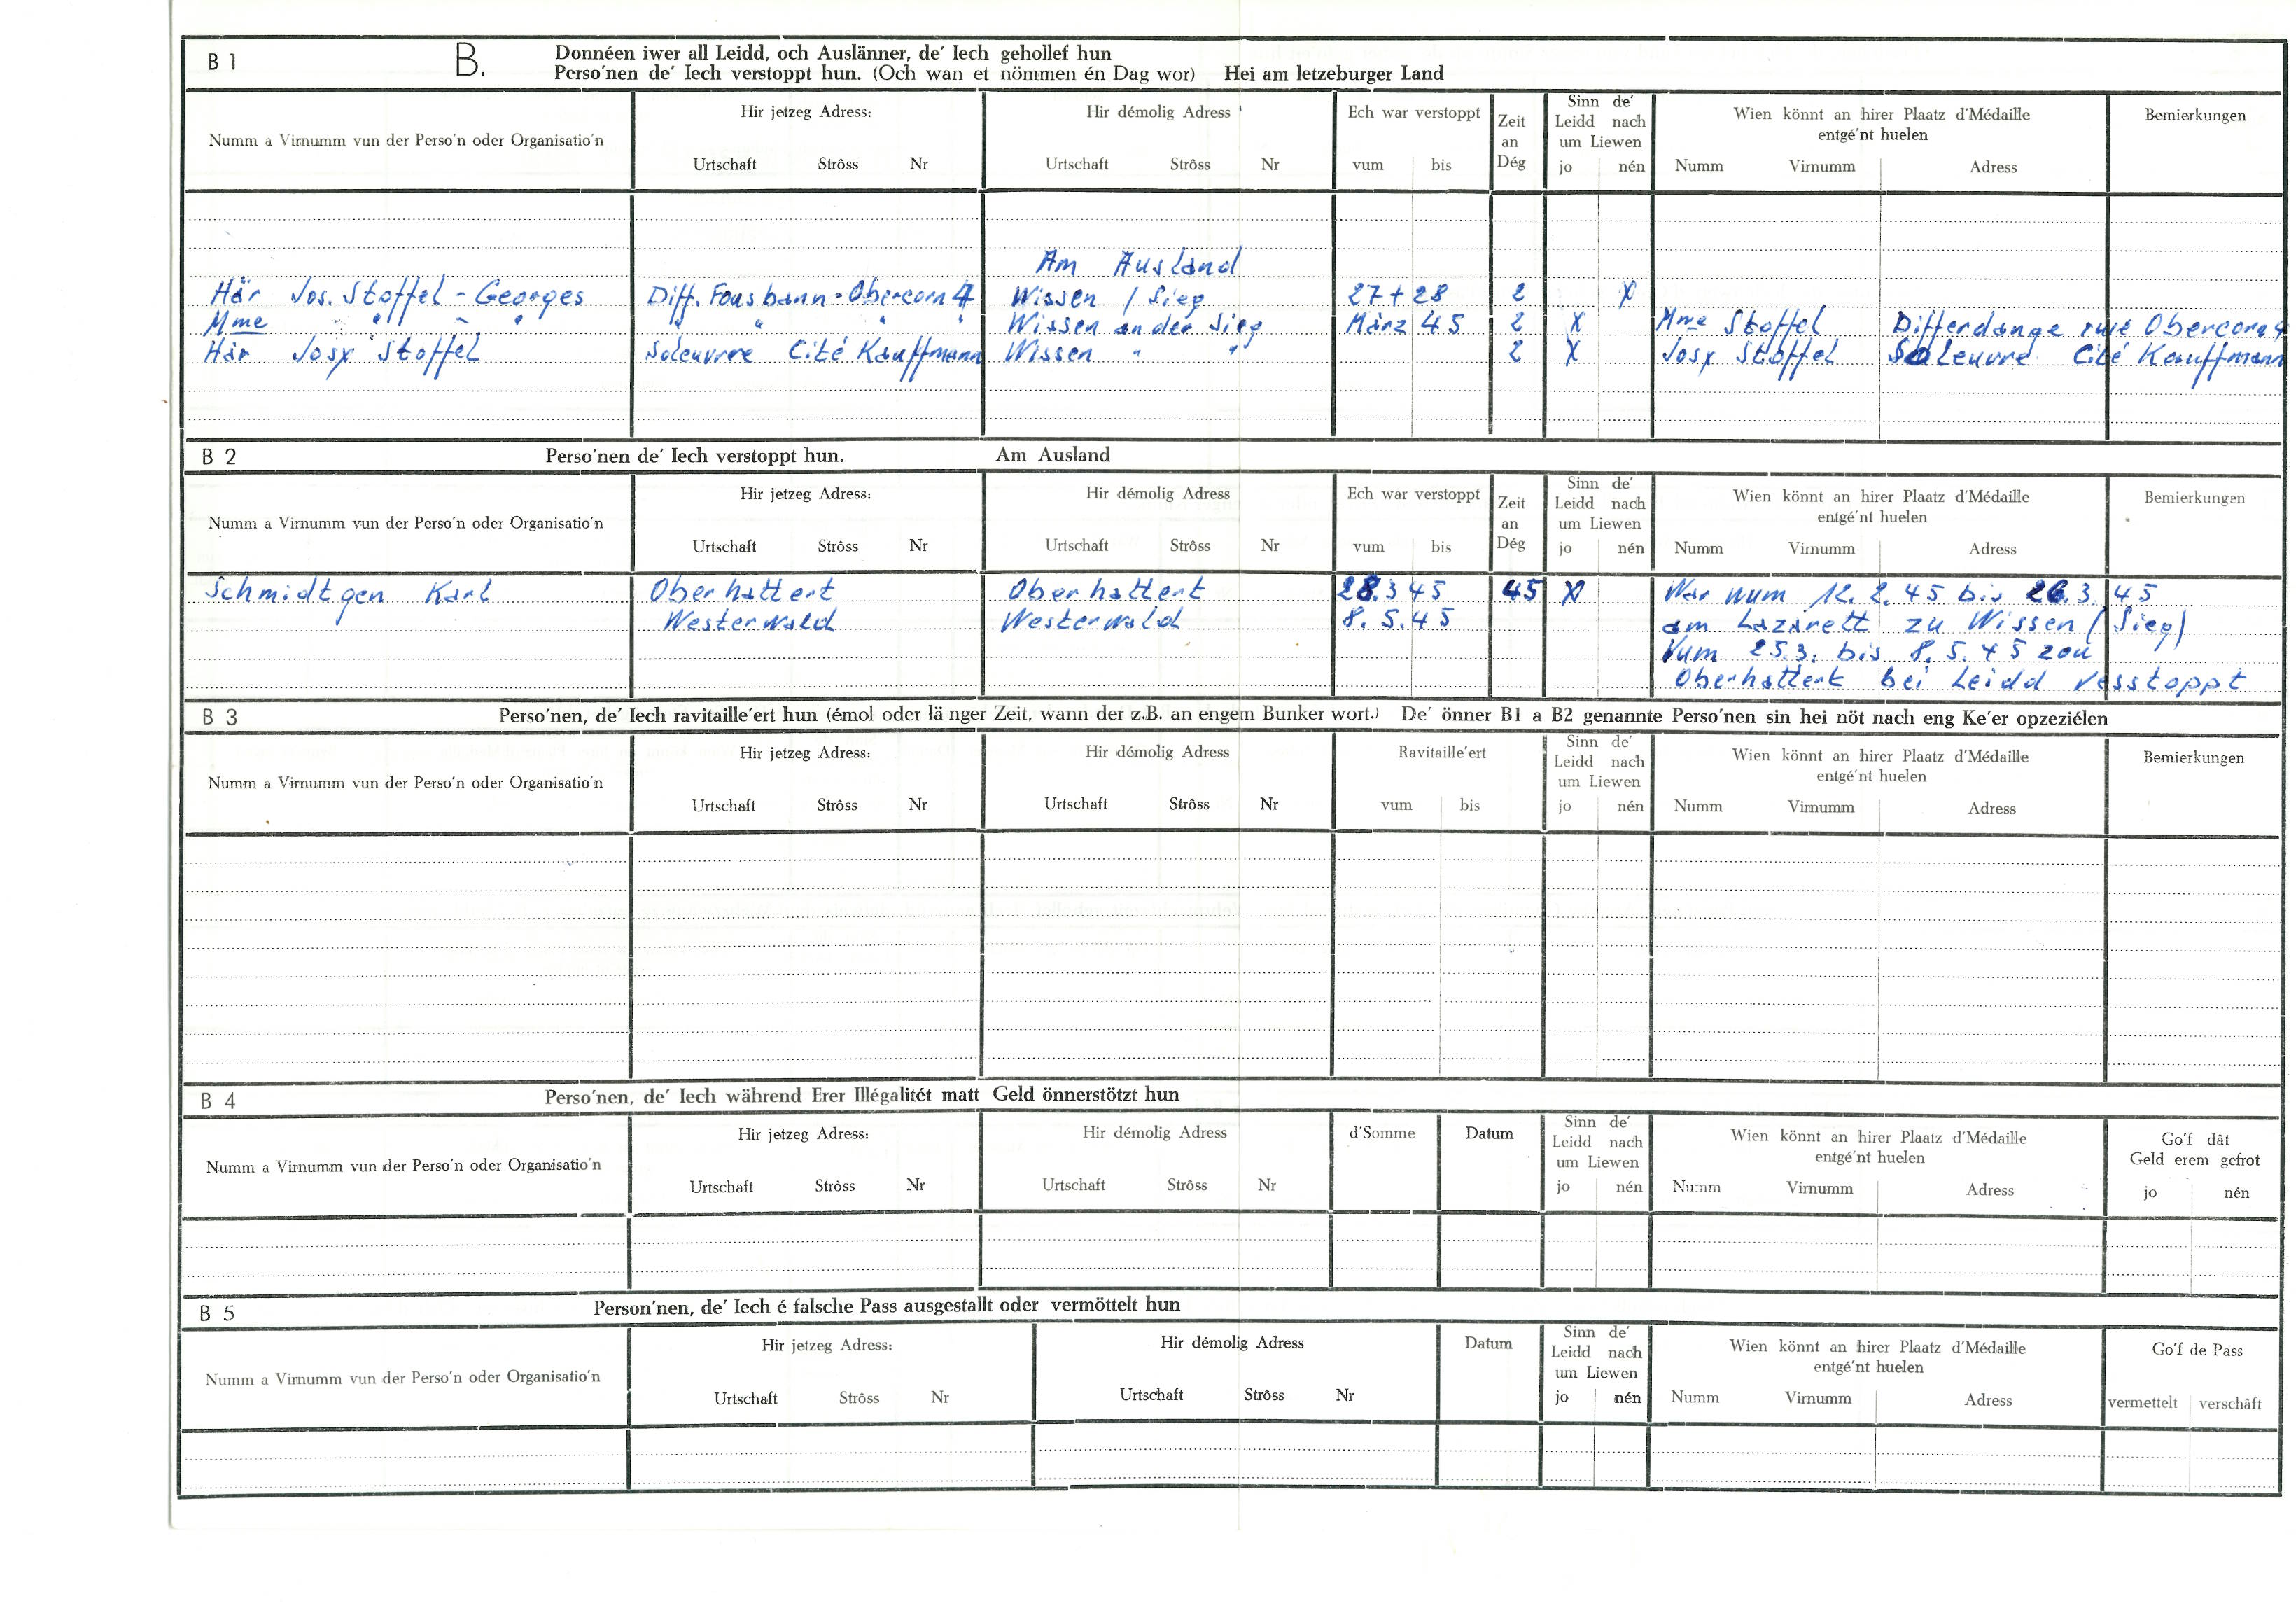 B 1 B. Donnéen iwer all Leidd, och Auslänner, de' Iech gehollef hun
Perso'nen de' Iech verstoppt hun. (Och wan et nömmen én Dag wor) Hei am letzeburger Land
Numm a Virnumm vun der Perso'n oder Organisatio'n
Hir jetzeg Adress:
Urtschaft Strôss Nr
Hir démolig Adress
Urtschaft Strôss Nr
Ech war verstoppt
vum bis
Zeit
an
Dég
Sinn de'
Leidd nach
um Liewen
jo nén
Wien könnt an hirer Plaatz d'Médaille
entgé'nt huelen
Numm Virnumm Adress
Bemierkungen
Am Ausland
Här Jos. Stoffel - Georges Diff. Fousbann - Obercorn 4 Wissen / Sieg 27 + 28 2 X
Mme " - " " " " " Wissen an der Sieg März 45 2 X Mme Stoffel Differdange rue Obercorn 4
Här Josy Stoffel Soleuvre Cité Kauffmann Wissen " " 2 X Josy Stoffel Soleuvre Cité Kauffmann
B 2 Perso'nen de' Iech verstoppt hun. Am Ausland
Numm a Virnumm vun der Perso'n oder Organisatio'n
Hir jetzeg Adress:
Urtschaft Strôss Nr
Hir démolig Adress
Urtschaft Strôss Nr
Ech war verstoppt
vum bis
Zeit
an
Dég
Sinn de'
Leidd nach
um Liewen
jo nén
Wien könnt an hirer Plaatz d'Médaille
entgé'nt huelen
Numm Virnumm Adress
Bemierkungen
Schmidtgen Karl Oberhattert Oberhattert 28.3 45 45 X War vum 12. 2. 45 bis 26. 3. 45
Westerwald Westerwald 8. 5. 45 am Lazarett zu Wissen (Sieg)
Vum 25.3. bis 8. 5. 45 zou
Oberhattert bei Leidd vesstoppt
B 3 Perso'nen, de' Iech ravitaille'ert hun (émol oder lä nger Zeit, wann der z.B. an engem Bunker wort.) De' önner B1 a B2 genannte Perso'nen sin hei nöt nach eng Ke'er opzeziélen
Numm a Virnumm vun der Perso'n oder Organisatio'n
Hir jetzeg Adress:
Urtschaft Strôss Nr
Hir démolig Adress
Urtschaft Strôss Nr
Ravitaille'ert
vum bis
Sinn de'
Leidd nach
um Liewen
jo nén
Wien könnt an hirer Plaatz d'Médaille
entgé'nt huelen
Numm Virnumm Adress
Bemierkungen
B 4 Perso'nen, de' Iech während Erer Illégalitét matt Geld önnerstötzt hun
Numm a Virnumm vun der Perso'n oder Organisatio'n
Hir jetzeg Adress:
Urtschaft Strôss Nr
Hir démolig Adress
Urtschaft Strôss Nr
d'Somme
Datum
Sinn de'
Leidd nach
um Liewen
jo nén
Wien könnt an hirer Plaatz d'Médaille
entgé'nt huelen
Numm Virnumm Adress
Go'f dât
Geld erem gefrot
jo nén
B 5 Person'nen, de' Iech é falsche Pass ausgestallt oder vermöttelt hun
Numm a Virnumm vun der Perso'n oder Organisatio'n
Hir jetzeg Adress:
Urtschaft Strôss Nr
Hir démolig Adress
Urtschaft Strôss Nr
Datum
Sinn de'
Leidd nach
um Liewen
jo nén
Wien könnt an hirer Plaatz d'Médaille
entgé'nt huelen
Numm Virnumm Adress
Go'f de Pass
vermettelt verschâft